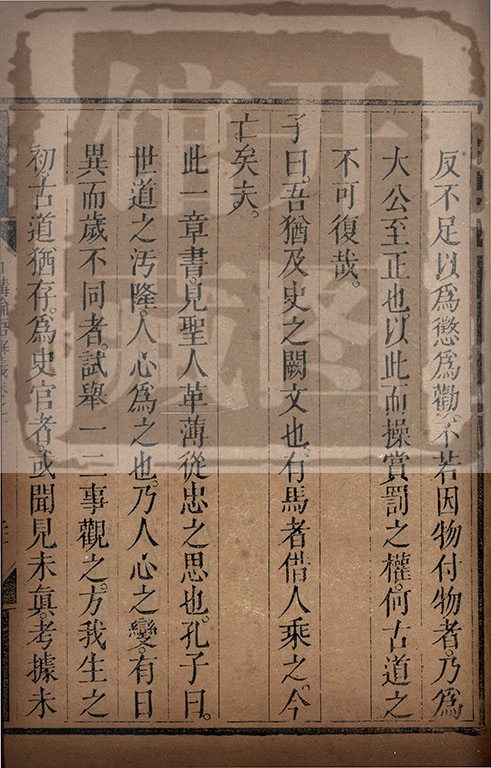 反不足以為懲為勸。不若因物付物者。乃為
大公至正也。以此而操賞罰之權。何古道之
不可復哉。
子曰。吾猶及史之闕文也。有馬者借人乘之。今
亡矣夫。
此一章書。見聖人革薄從忠之思也。孔子曰。
世道之汚隆。人心為之也。乃人心之變。有日
異而歲不同者。試舉一二事觀之。方我生之
初。古道猶存。為史官者。或聞見未真。考據未